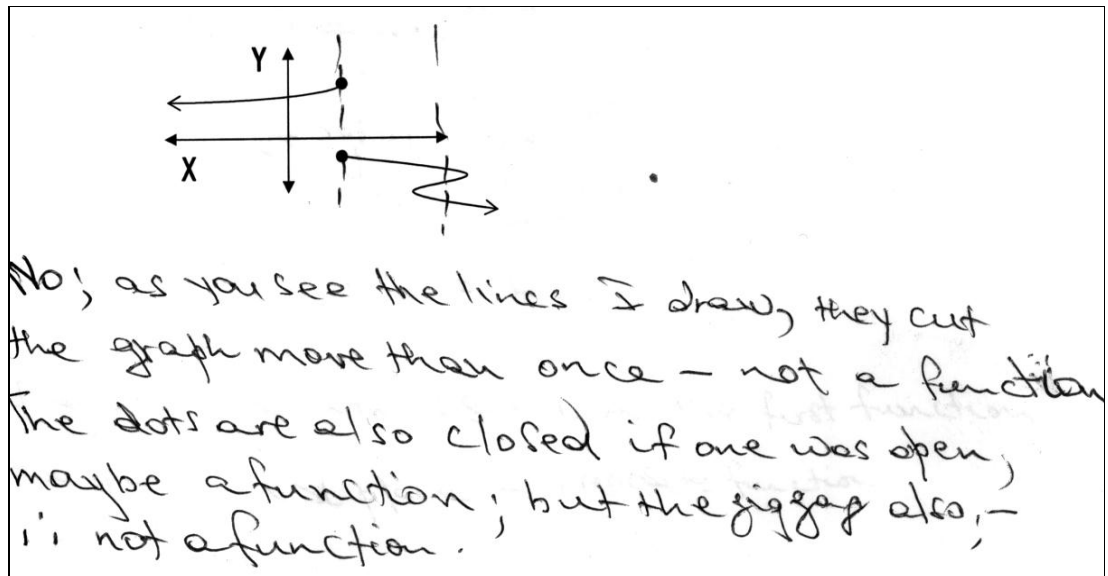 Y
X
No; as you see the lines I draw, they cut
the graph more than once – not a function
The dots are also closed if one was open,
maybe a function; but the zigzag also, –
not a function.